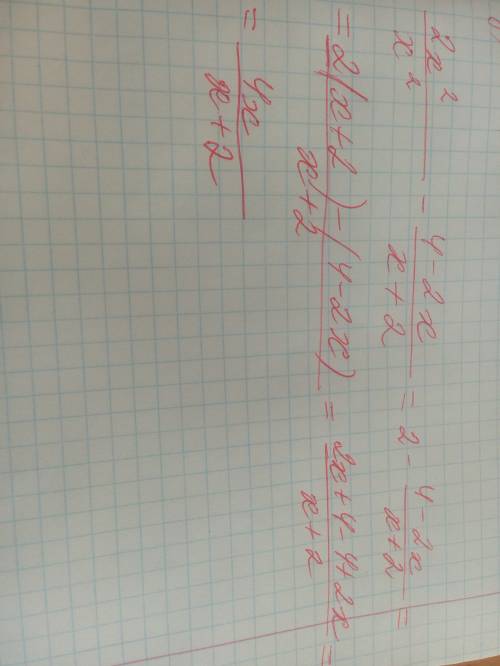 2x²/x² - (4-2x)/(x+2) = 2 - (4-2x)/(x+2) =
= (2(x+2)-(4-2x))/(x+2) = (2x+4-4+2x)/(x+2) =
= 4x/(x+2)